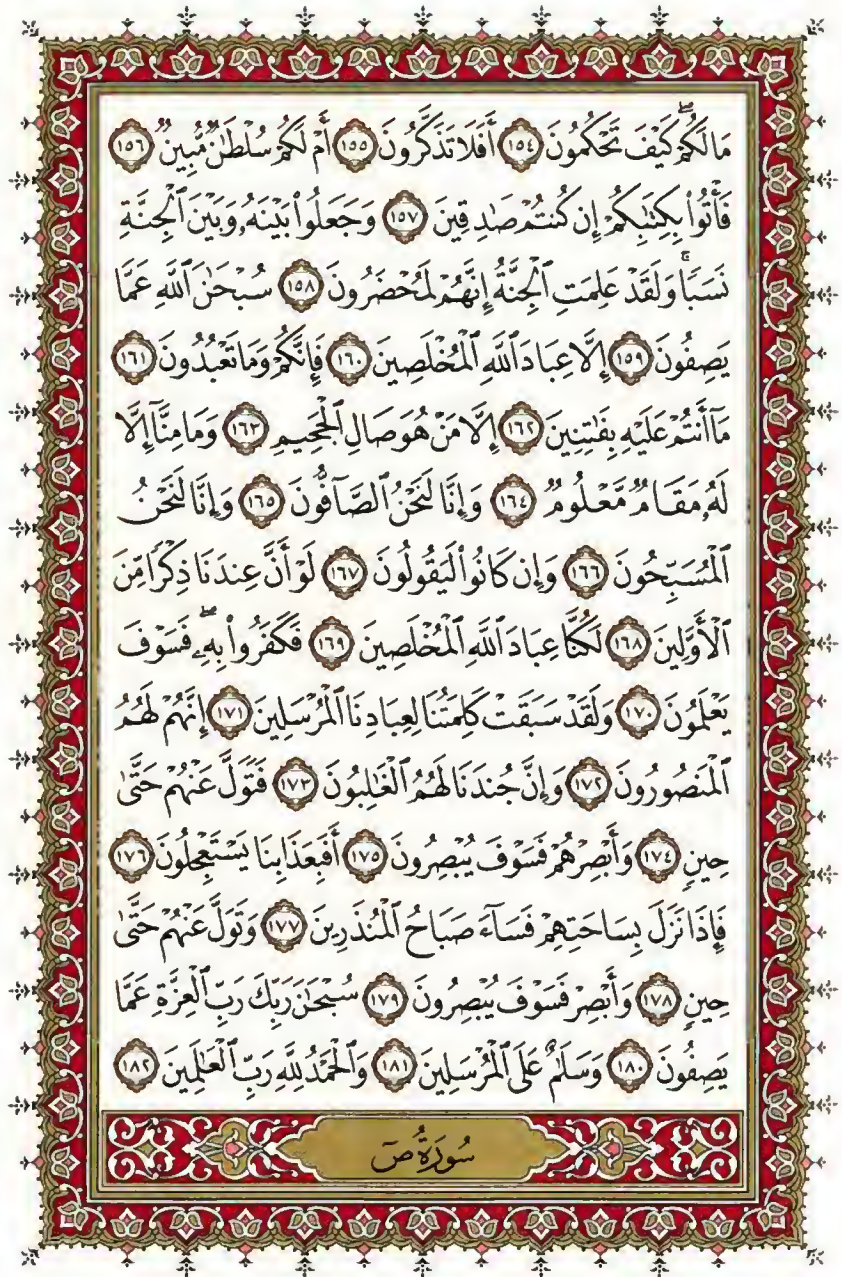 مَا لَكُمْ كَيْفَ تَحْكُمُونَ ١٥٤ أَفَلَا تَذَكَّرُونَ ١٥٥ أَمْ لَكُمْ سُلْطَـٰنٌ مُّبِينٌ ١٥٦
فَأْتُوا۟ بِكِتَـٰبِكُمْ إِن كُنتُمْ صَـٰدِقِينَ ١٥٧ وَجَعَلُوا۟ بَيْنَهُۥ وَبَيْنَ ٱلْجِنَّةِ
نَسَبًا ۚ وَلَقَدْ عَلِمَتِ ٱلْجِنَّةُ إِنَّهُمْ لَمُحْضَرُونَ ١٥٨ سُبْحَـٰنَ ٱللَّهِ عَمَّا
يَصِفُونَ ١٥٩ إِلَّا عِبَادَ ٱللَّهِ ٱلْمُخْلَصِينَ ١٦٠ فَإِنَّكُمْ وَمَا تَعْبُدُونَ ١٦١
مَآ أَنتُمْ عَلَيْهِ بِفَـٰتِنِينَ ١٦٢ إِلَّا مَنْ هُوَ صَالِ ٱلْجَحِيمِ ١٦٣ وَمَا مِنَّآ إِلَّا
لَهُۥ مَقَامٌ مَّعْلُومٌ ١٦٤ وَإِنَّا لَنَحْنُ ٱلصَّآفُّونَ ١٦٥ وَإِنَّا لَنَحْنُ
ٱلْمُسَبِّحُونَ ١٦٦ وَإِن كَانُوا۟ لَيَقُولُونَ ١٦٧ لَوْ أَنَّ عِندَنَا ذِكْرًا مِّنَ
ٱلْأَوَّلِينَ ١٦٨ لَكُنَّا عِبَادَ ٱللَّهِ ٱلْمُخْلَصِينَ ١٦٩ فَكَفَرُوا۟ بِهِۦ ۖ فَسَوْفَ
يَعْلَمُونَ ١٧٠ وَلَقَدْ سَبَقَتْ كَلِمَتُنَا لِعِبَادِنَا ٱلْمُرْسَلِينَ ١٧١ إِنَّهُمْ لَهُمُ
ٱلْمَنصُورُونَ ١٧٢ وَإِنَّ جُندَنَا لَهُمُ ٱلْغَـٰلِبُونَ ١٧٣ فَتَوَلَّ عَنْهُمْ حَتَّىٰ
حِينٍ ١٧٤ وَأَبْصِرْهُمْ فَسَوْفَ يُبْصِرُونَ ١٧٥ أَفَبِعَذَابِنَا يَسْتَعْجِلُونَ ١٧٦
فَإِذَا نَزَلَ بِسَاحَتِهِمْ فَسَآءَ صَبَاحُ ٱلْمُنذَرِينَ ١٧٧ وَتَوَلَّ عَنْهُمْ حَتَّىٰ
حِينٍ ١٧٨ وَأَبْصِرْ فَسَوْفَ يُبْصِرُونَ ١٧٩ سُبْحَـٰنَ رَبِّكَ رَبِّ ٱلْعِزَّةِ عَمَّا
يَصِفُونَ ١٨٠ وَسَلَـٰمٌ عَلَى ٱلْمُرْسَلِينَ ١٨١ وَٱلْحَمْدُ لِلَّهِ رَبِّ ٱلْعَـٰلَمِينَ ١٨٢
سُورَةُ صٓ